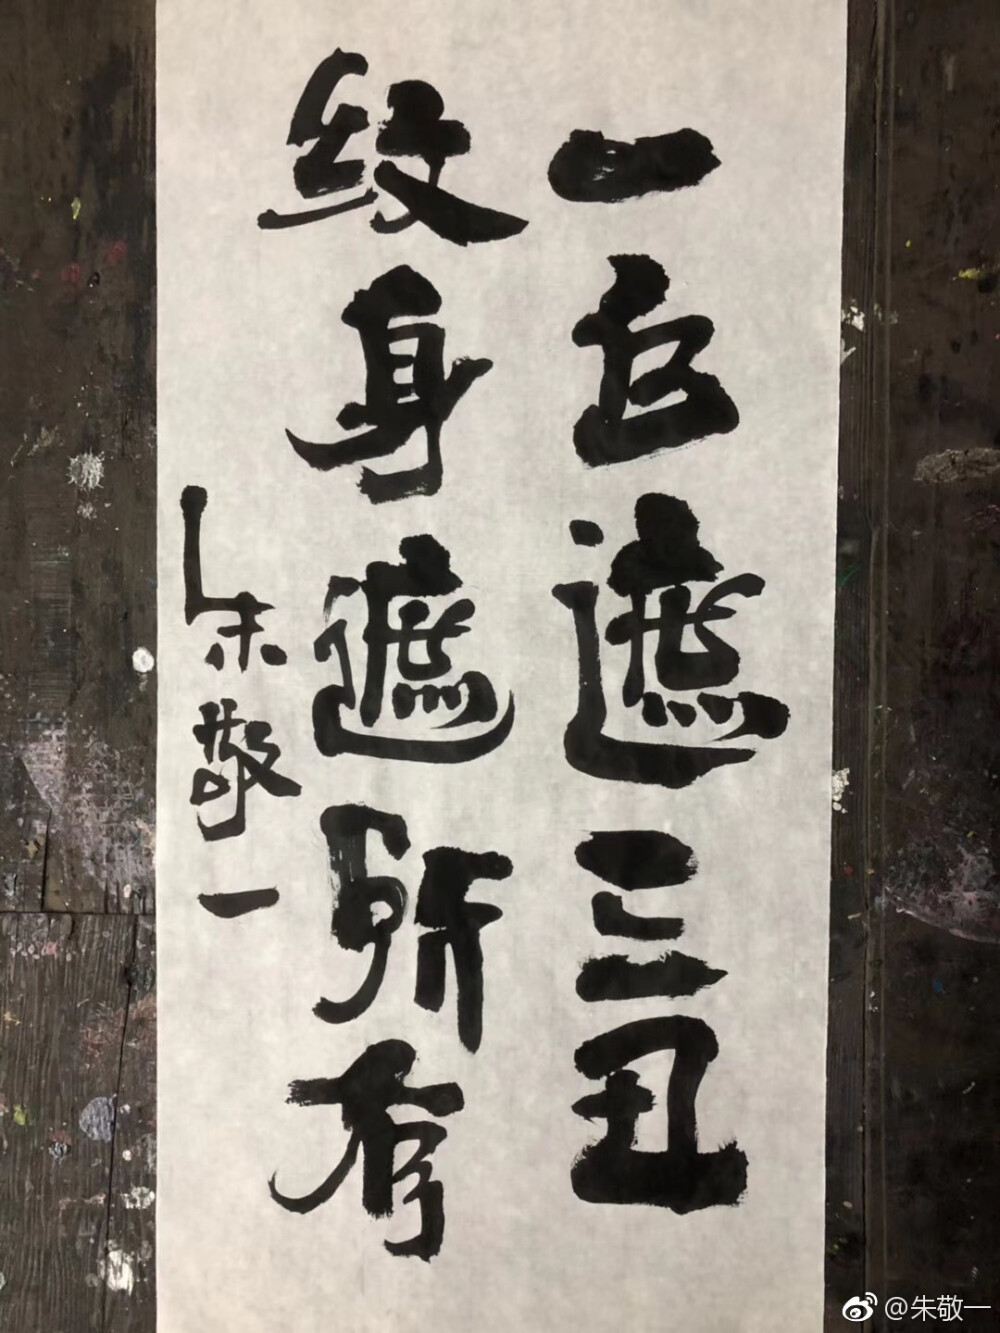 一白遮三丑
纹身遮所有
朱敬一
@朱敬一